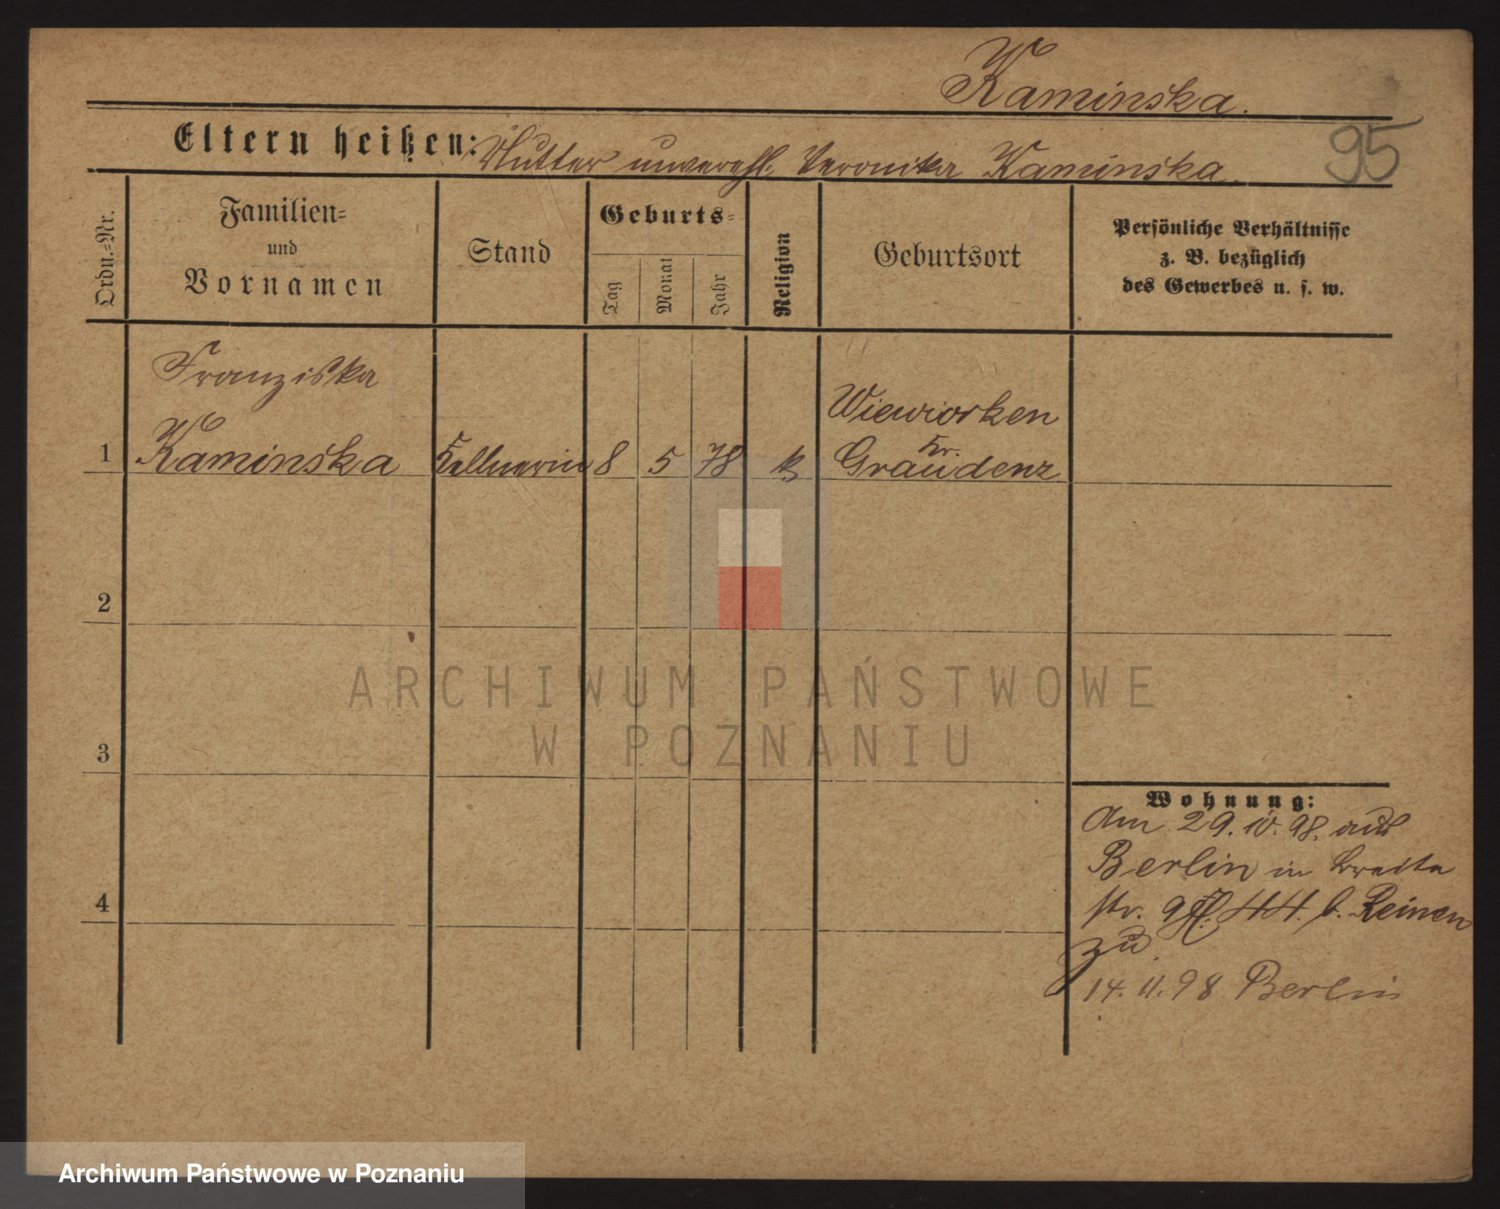 Kaminska.
95
Eltern heißen: Mutter unverehl. Veronika Kaminska.
Ordn.=Nr.
Familien=
und
Vornamen
Stand
Geburts=
Tag
Monat
Jahr
Religion
Geburtsort
Persönliche Verhältnisse
z. B. bezüglich
des Gewerbes u. s. w.
Franziska
Wieworken
Kr.
1 Kaminska Kellnerin 8 5 78 k Graudenz
2
ARCHIWUM PAŃSTWOWE
W POZNANIU
3
Wohnung:
Am 29. 10. 98. aus
Berlin in Breite
4
str. 44. b. Reinen
zu.
14. 11. 98 Berlin
Archiwum Państwowe w Poznaniu